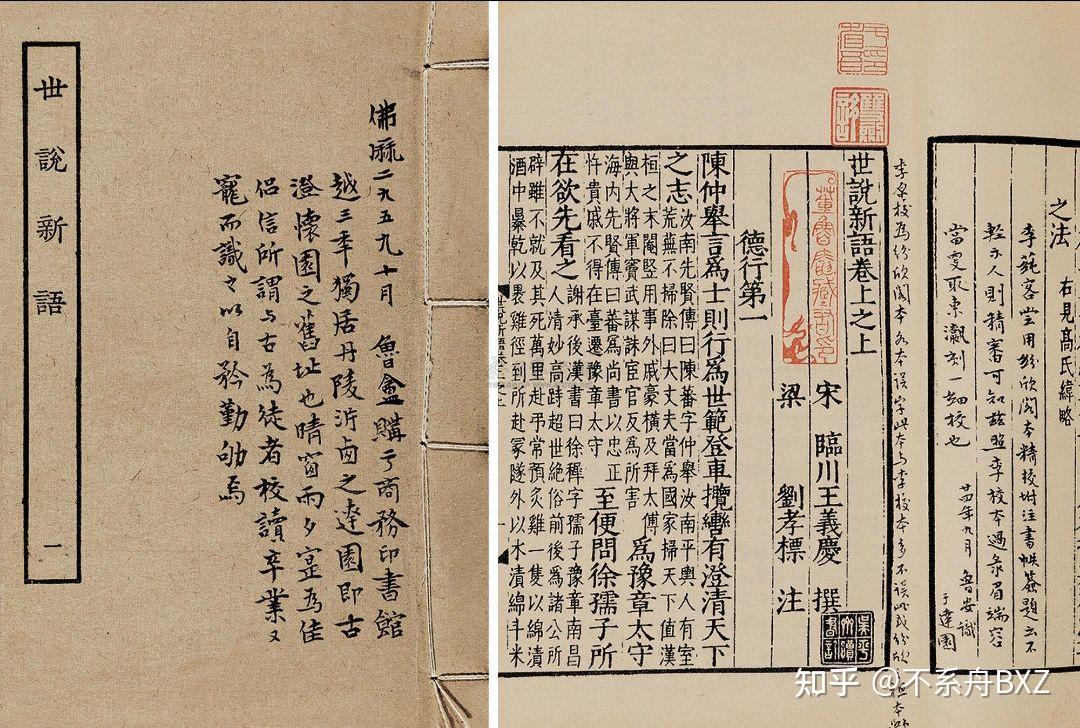 世說新語 一
佛厤二九五九十月 魯盦購于商務印書館
越三年獨居丹陵沜鹵之達園即古
澄懷園之舊址也晴窗雨夕寔為佳
侣信所謂与古為徒者校讀卒業又
寵而識之以自矜勤劬焉
之法 右見高氏緯略
李蒓客嘗用紛欣閣本精校坿注書帙簽題云不
輕示人則精審可知茲照李校本過彔眉端容
當更取 刻一細校也 廿四年九月 魯安識
于達園
校爲紛欣閣本 各本誤字此本与李校本多不誤此或紛欣
世說新語卷上之上
宋 臨川王義慶 撰
梁 劉孝標 注
德行第一
陳仲舉言爲士則行爲世範登車攬轡有澄清天下
之志
汝南先賢傳曰陳蕃字仲舉汝南平輿人有室
荒蕪不掃除曰大丈夫當爲國家掃天下值漢
桓之末閹豎用事外戚豪橫及拜太傅
與大將軍竇武謀誅宦官反爲所害
爲豫章太守
海内先賢傳曰蕃爲尚書以忠正
忤貴戚不得在臺遷豫章太守
至便問徐孺子所
在欲先看之
謝承後漢書曰徐穉字孺子豫章南昌
人清妙高跱超世絕俗前後爲諸公所
辟雖不就及其死萬里赴弔常預炙雞一隻以綿漬
酒中暴乾以裹雞徑到所赴冢隧外以水漬綿斗米
知乎 @不系舟BXZ